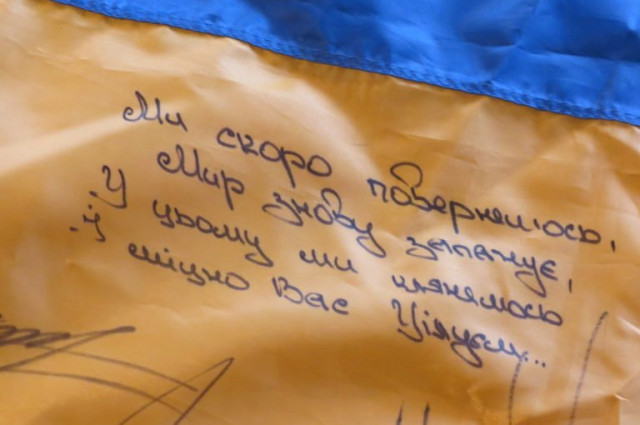 Ми скоро повернемось,
Мир знову запанує,
У цьому ми клянемось
Й міцно Вас Цілуєм...